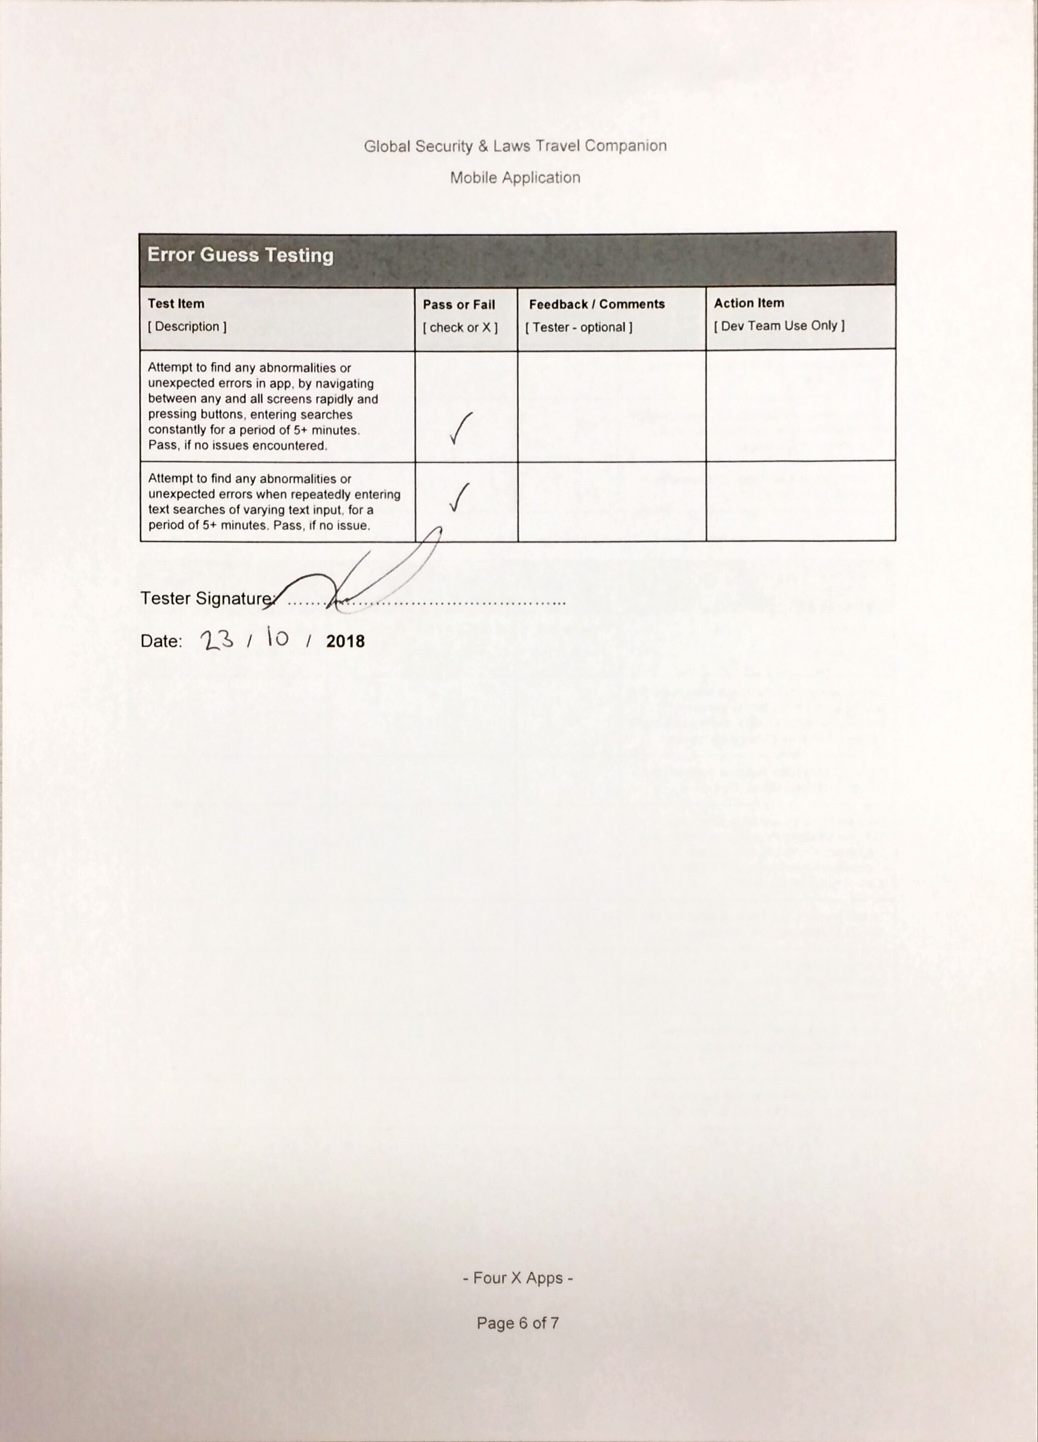 Global Security & Laws Travel Companion
Mobile Application
Error Guess Testing
Test Item
[ Description ]
Pass or Fail
[ check or X ]
Feedback / Comments
[ Tester - optional ]
Action Item
[ Dev Team Use Only ]
Attempt to find any abnormalities or
unexpected errors in app, by navigating
between any and all screens rapidly and
pressing buttons, entering searches
constantly for a period of 5+ minutes.
Pass, if no issues encountered.
✓
Attempt to find any abnormalities or
unexpected errors when repeatedly entering
text searches of varying text input, for a
period of 5+ minutes. Pass, if no issue.
✓
Tester Signature: ......................................................
Date: 23 / 10 / 2018
- Four X Apps -
Page 6 of 7